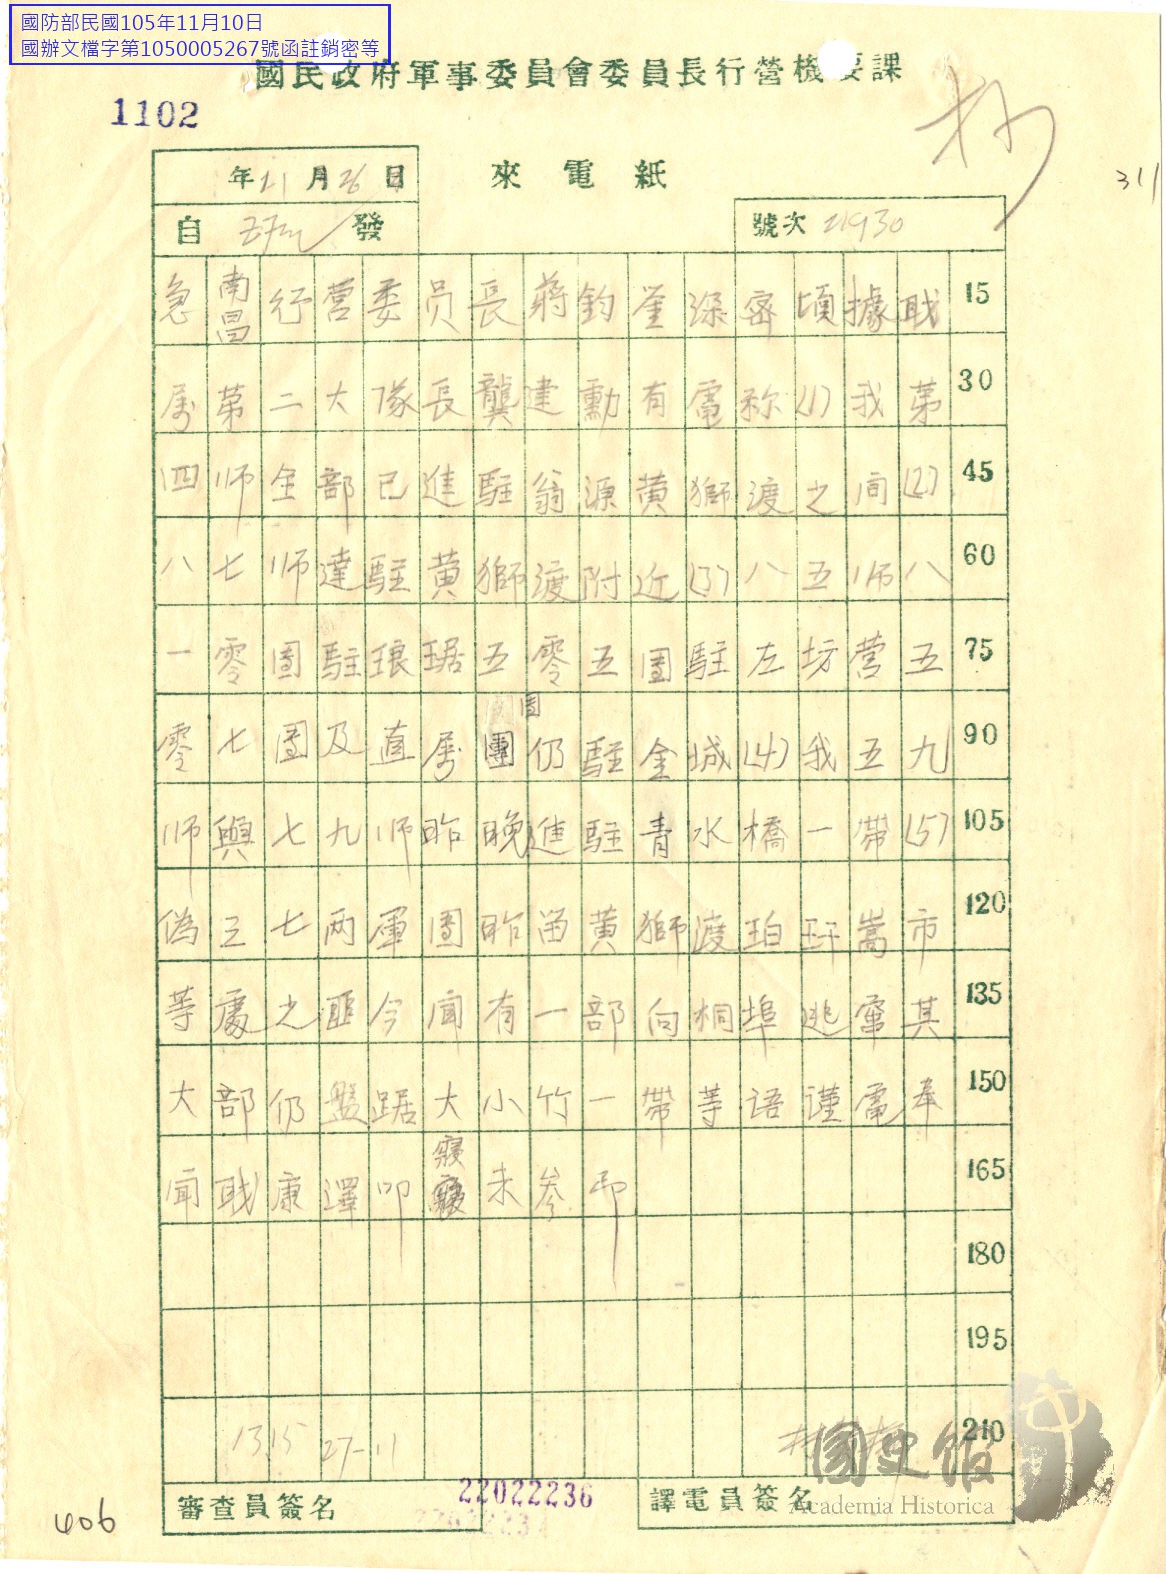 國防部民國105年11月10日
國辦文檔字第1050005267號函註銷密等
國民政府軍事委員會委員長行營機要課
1102
抄
311
來電紙
年11月26日
自 發
號次 21930
急南昌行營委员長蔣鈞鉴深密頃據職 15
属第二大隊長龔建勳有電称(1)我第 30
四师全部已進駐翁源黄獅渡之间(2) 45
八七师達駐黄獅渡附近(3)八五师八 60
一零團駐琅琚五零五團駐左坊营五 75
團
零七團及直属團仍駐金城(4)我五九 90
师與七九师昨晚進駐青水橋一帶(5) 105
偽三七两軍團昨留黄獅渡珀玕嵩市 120
等處之匪今聞有一部向桐埠逃竄其 135
大部仍盤踞大小竹一帶等语謹電奉 150
寢
聞職康澤叩未参印 165
180
195
1315 27-11 210
審查員簽名
22022236
譯電員簽名
國史館
Academia Historica
406